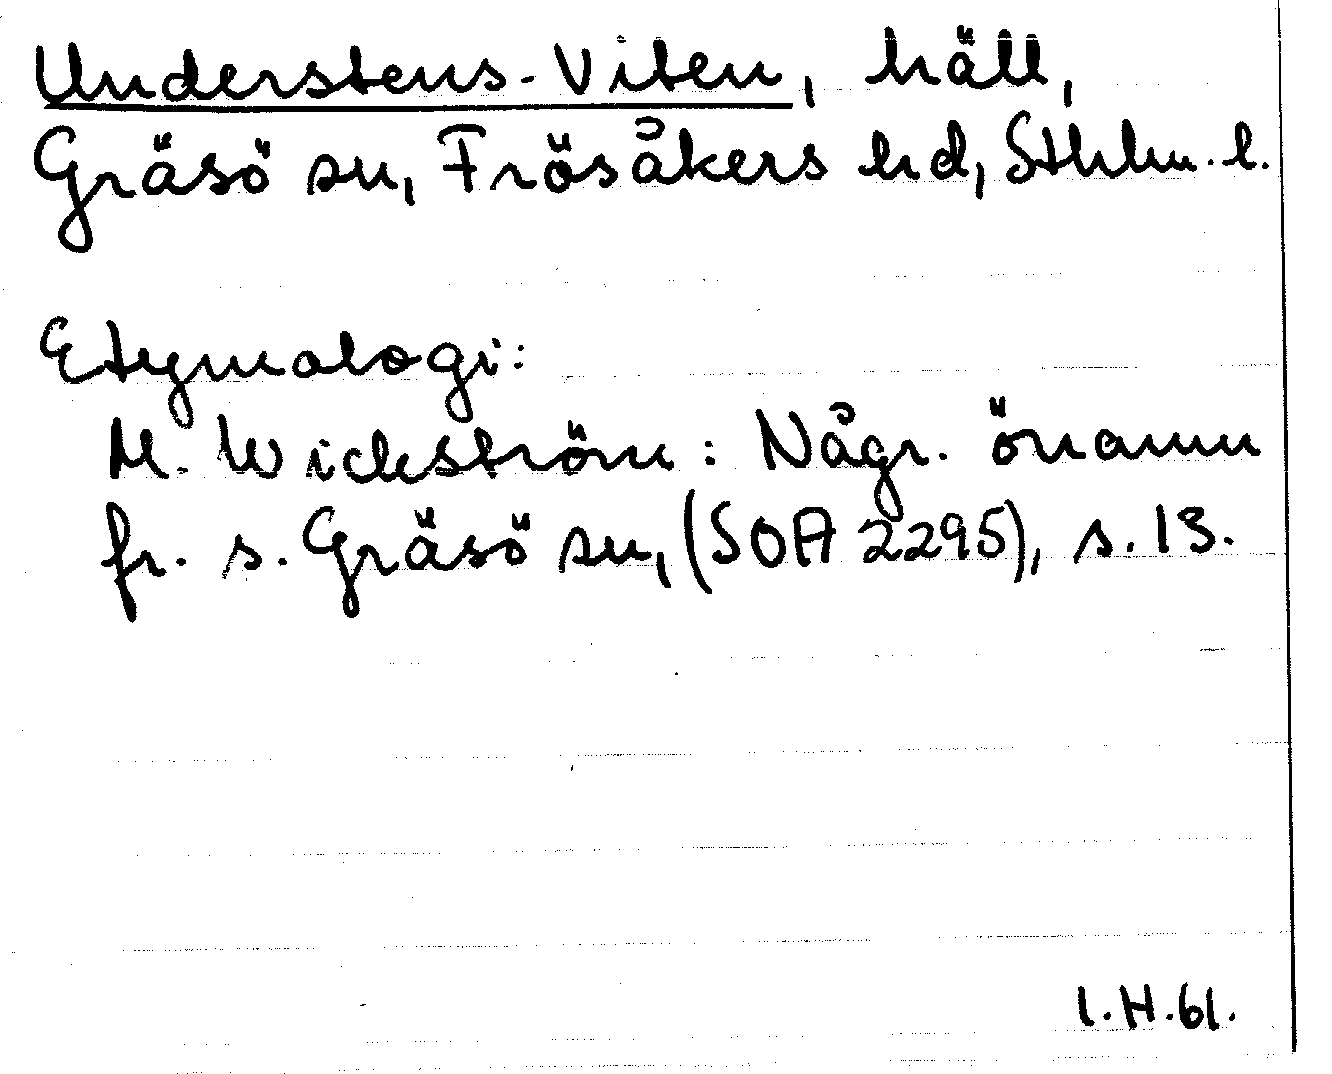 Understens-Viten, häll,
Gräsö sn, Frösåkers hd, Sthlm. l.
Etymologi:
M. Wickström: Någr. önamn
fr. s. Gräsö sn, (SOA 2295), s. 13.
I.H.61.